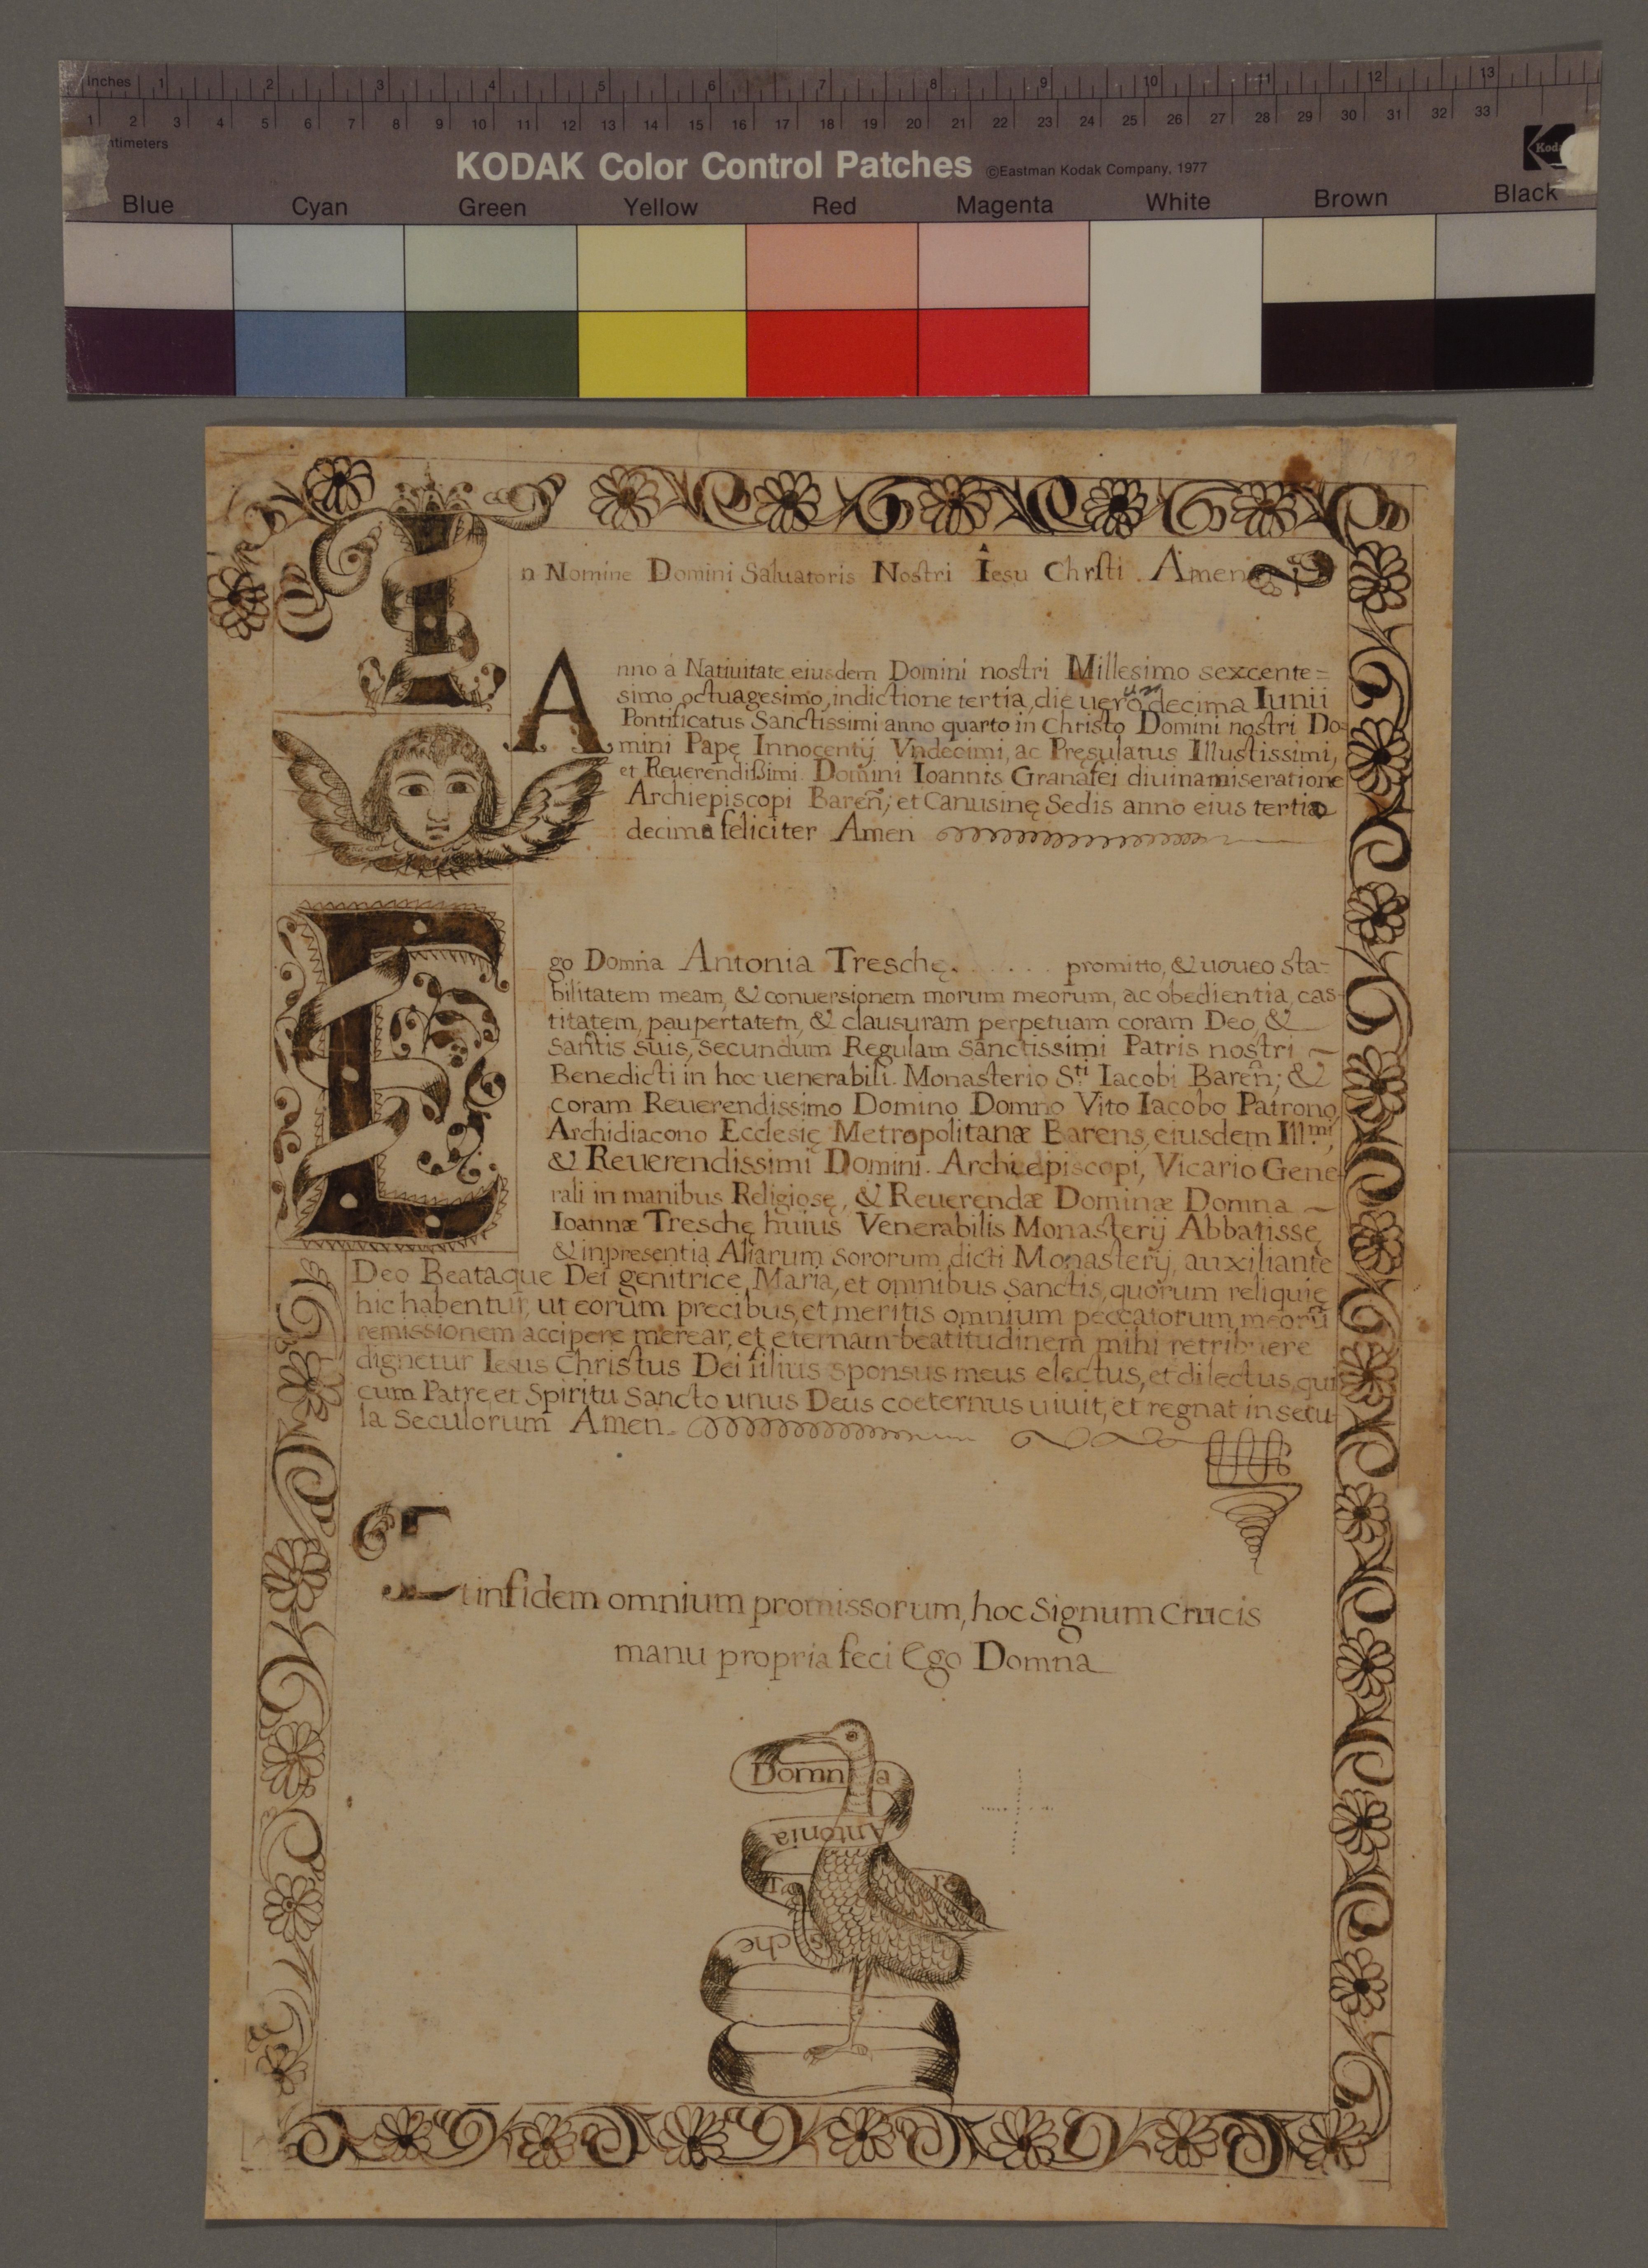 Inches 1 2 3 4 5 6 7 8 9 10 11 12 13
1 2 3 4 5 6 7 8 9 10 11 12 13 14 15 16 17 18 19 20 21 22 23 24 25 26 27 28 29 30 31 32 33
ntimeters
KODAK Color Control Patches ©Eastman Kodak Company, 1977
Blue Cyan Green Yellow Red Magenta White Brown Black
In Nomine Domini Saluatoris Nostri Iesu Chrsti . Amen
Anno á Natiuitate eiusdem Domini nostri Millesimo sexcente=
simo octuagesimo, indictione tertia, die uero undecima Iunii
Pontificatus Sanctissimi anno quarto in Christo Domini nostri Do-
mini Papę Innocentij Vndecimi, ac Pręsulatus Illustissimi,
et Reuerendißimi. Domini Ioannis Granafei diuina miseratione
Archiepiscopi Bareñ; et Canusinę Sedis anno eius tertio
decimo feliciter Amen
Ego Domna Antonia Treschę. . . . . promitto, & uoueo sta-
bilitatem meam, & conuersionem morum meorum, ac obedientia, cas-
titatem, paupertatem, & clausuram perpetuam coram Deo, &
santis suis, secundum Regulam sanctissimi Patris nostri
Benedicti in hoc uenerabili. Monasterio S.ti Iacobi Bareñ; &
coram Reuerendissimo Domino Domno Vito Iacobo Patrono
Archidiacono Ecclesię Metropolitanæ Barens, eiusdem Ill.mi,
& Reuerendissimi Domini. Archiepiscopi, Vicario Gene-
rali in manibus Religiosę, & Reuerendæ Dominæ Domna
Ioannæ Treschę huius Venerabilis Monasterij Abbatissę
& inpresentia Aliarum sororum dicti Monasterij, auxiliante
Deo Beataque Dei genitrice, Maria, et omnibus sanctis, quorum reliquię
hic habentur, ut eorum precibus, et meritis omnium peccatorum meorũ
remissionem accipere merear, et eternam beatitudinem mihi retribuere
dignetur Iesus Christus Dei filius sponsus meus electus, et dilectus, qui
cum Patre, et Spiritu Sancto unus Deus coeternus uiuit, et regnat in secu-
la Seculorum Amen.
Et infidem omnium promissorum, hoc signum crucis
manu propria feci Ego Domna
Domna
Antonia
Tre
sche